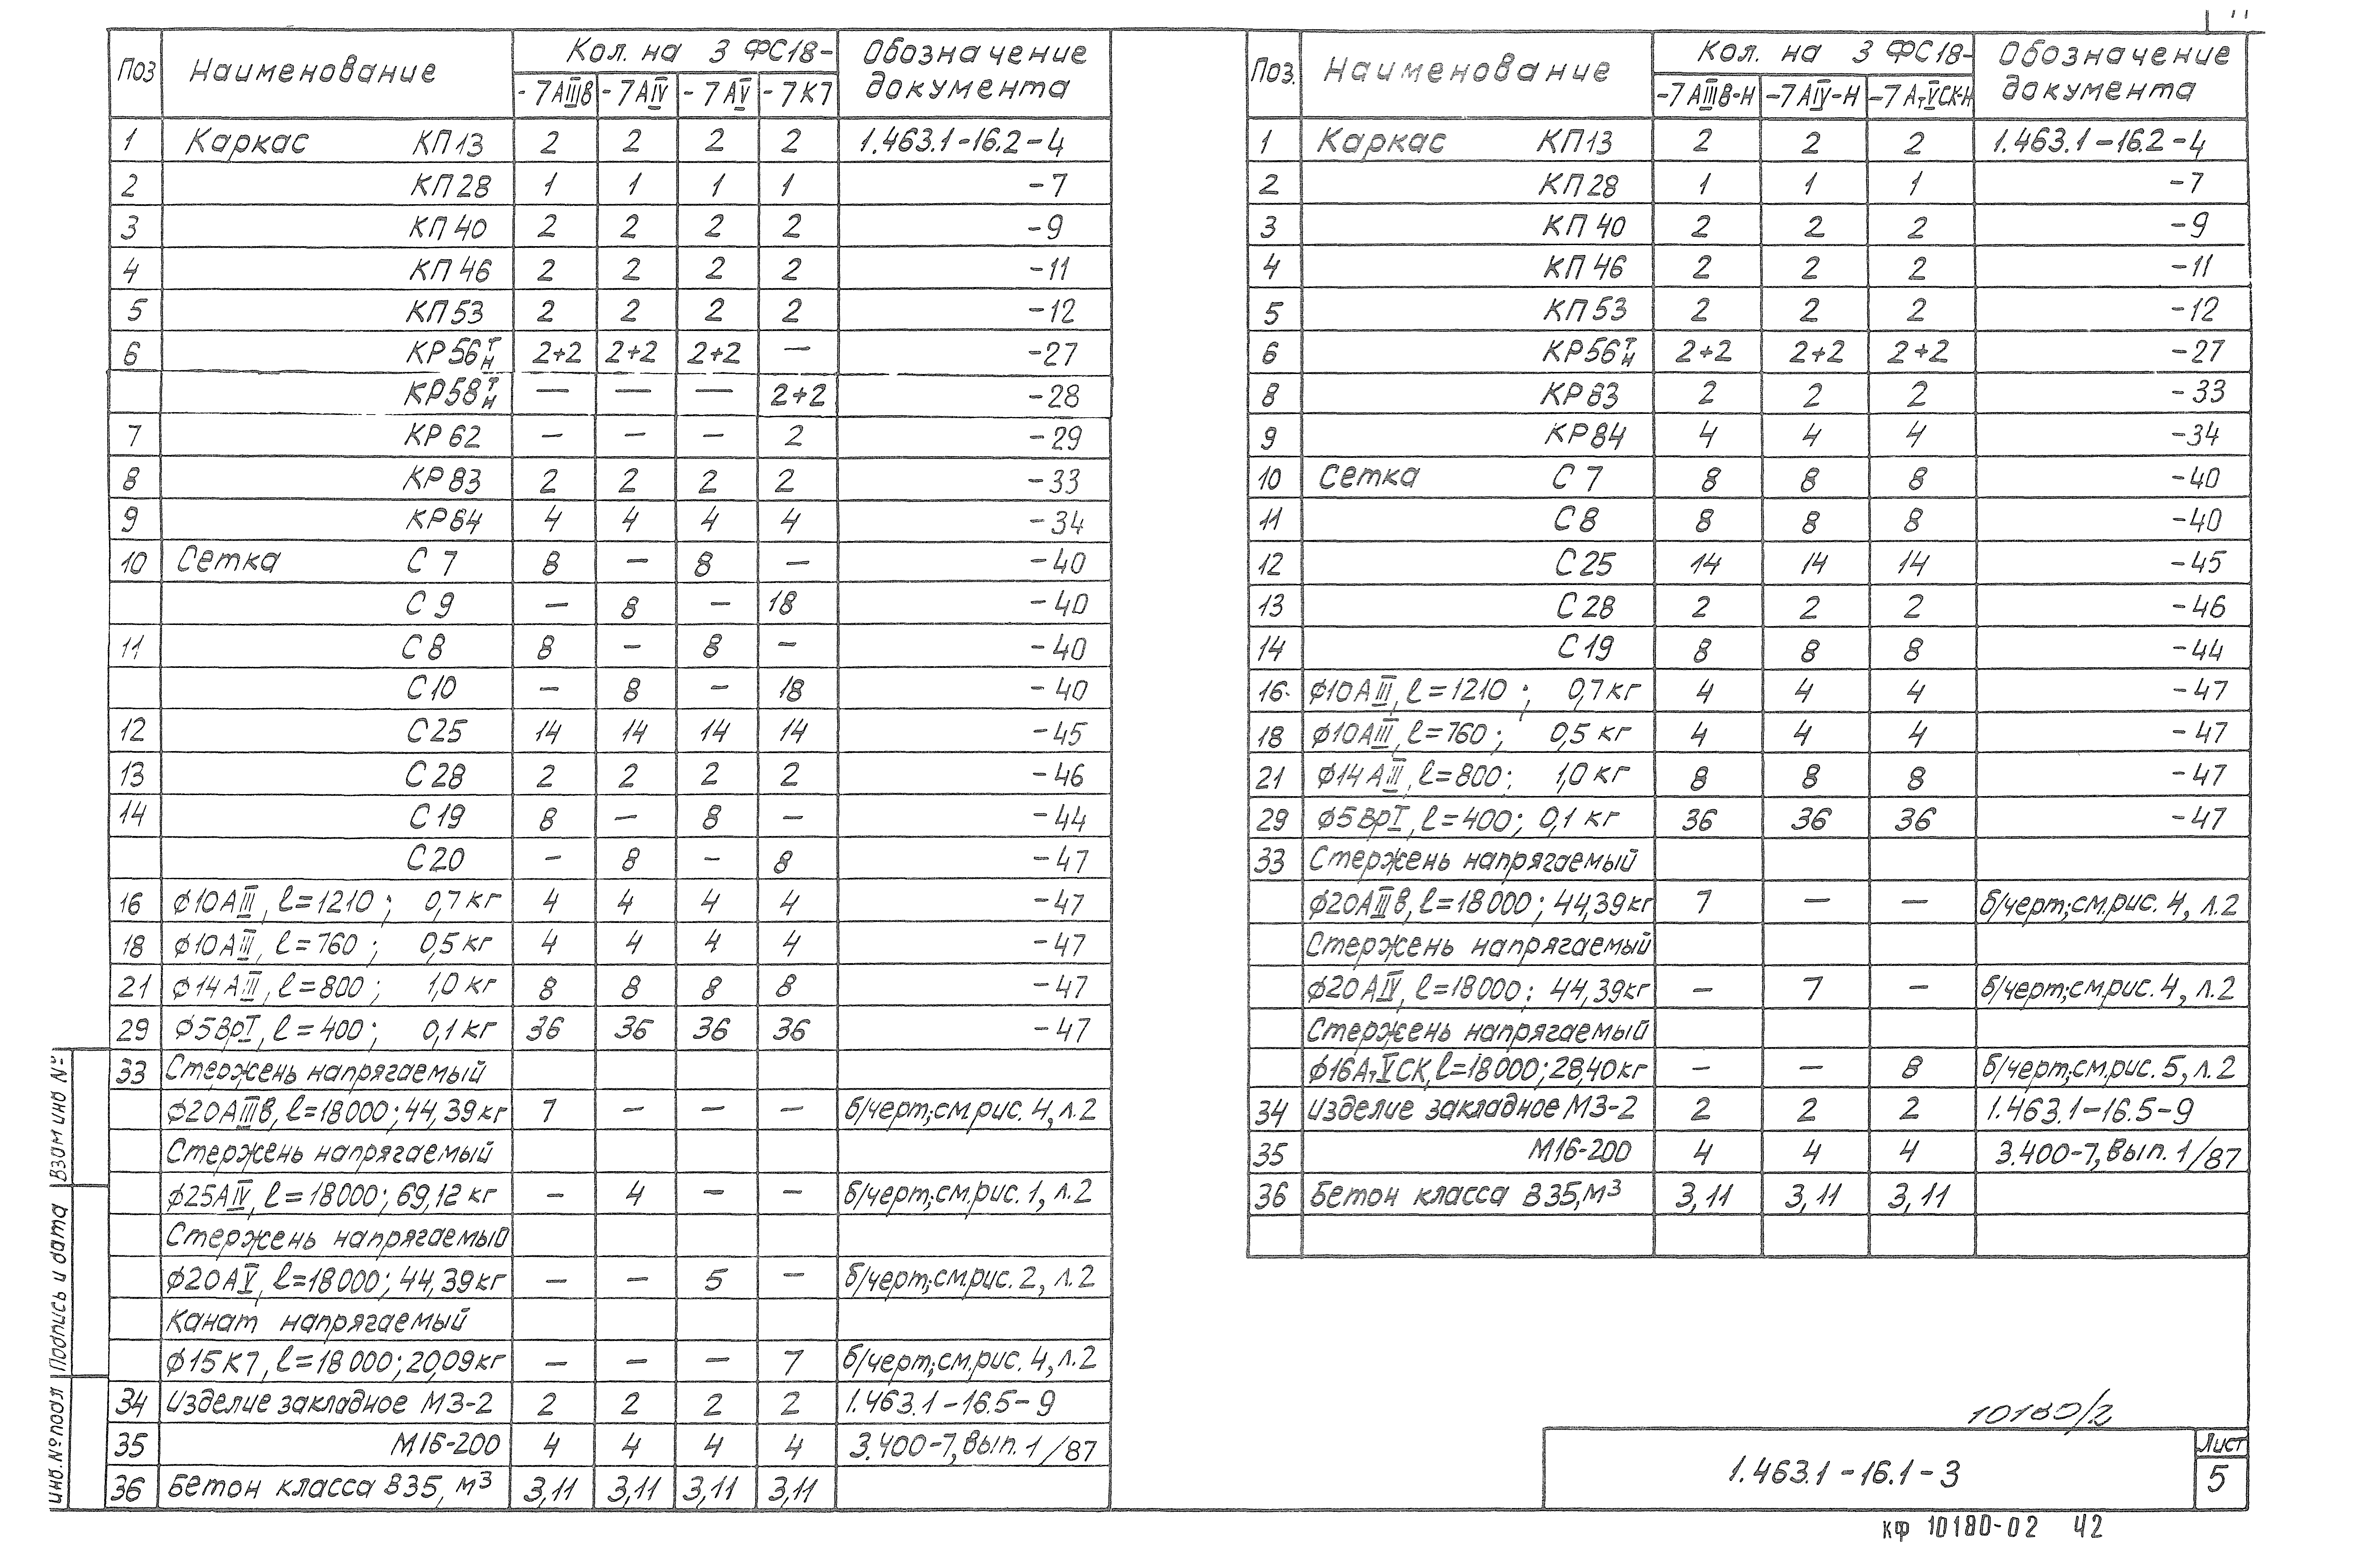 Поз Наименование Кол. на 3 ФС18- Обозначение документа
-7АIIIв -7АIV -7АV -7К7
1 Каркас КП13 2 2 2 2 1.463.1-16.2-4
2 КП28 1 1 1 1 -7
3 КП40 2 2 2 2 -9
4 КП46 2 2 2 2 -11
5 КП53 2 2 2 2 -12
6 КР56 Т/Н 2+2 2+2 2+2 — -27
КР58 Т/Н — — — 2+2 -28
7 КР62 — — — 2 -29
8 КР83 2 2 2 2 -33
9 КР84 4 4 4 4 -34
10 Сетка С7 8 — 8 — -40
С9 — 8 — 18 -40
11 С8 8 — 8 — -40
С10 — 8 — 18 -40
12 С25 14 14 14 14 -45
13 С28 2 2 2 2 -46
14 С19 8 — 8 — -44
С20 — 8 — 8 -47
16 ϕ10АIII, ℓ=1210; 0,7кг 4 4 4 4 -47
18 ϕ10АIII, ℓ=760; 0,5кг 4 4 4 4 -47
21 ϕ14АIII, ℓ=800; 1,0кг 8 8 8 8 -47
29 ϕ5ВрI, ℓ=400; 0,1кг 36 36 36 36 -47
33 Стержень напрягаемый
ϕ20АIIIв, ℓ=18000; 44,39кг 7 — — — б/черт; см.рис. 4, л.2
Стержень напрягаемый
ϕ25АIV, ℓ=18000; 69,12кг — 4 — — б/черт; см.рис. 1, л.2
Стержень напрягаемый
ϕ20АV, ℓ=18000; 44,39кг — — 5 — б/черт; см.рис. 2, л.2
Канат напрягаемый
ϕ15К7, ℓ=18000; 20,09кг — — — 7 б/черт; см.рис. 4, л.2
34 Изделие закладное МЗ-2 2 2 2 2 1.463.1-16.5-9
35 М16-200 4 4 4 4 3.400-7, вып. 1/87
36 Бетон класса В35, м³ 3,11 3,11 3,11 3,11
Поз. Наименование Кол. на 3 ФС18- Обозначение документа
-7АIIIв-Н -7АIV-Н -7АтVСК-Н
1 Каркас КП13 2 2 2 1.463.1-16.2-4
2 КП28 1 1 1 -7
3 КП40 2 2 2 -9
4 КП46 2 2 2 -11
5 КП53 2 2 2 -12
6 КР56 Т/Н 2+2 2+2 2+2 -27
8 КР83 2 2 2 -33
9 КР84 4 4 4 -34
10 Сетка С7 8 8 8 -40
11 С8 8 8 8 -40
12 С25 14 14 14 -45
13 С28 2 2 2 -46
14 С19 8 8 8 -44
16 ϕ10АIII, ℓ=1210; 0,7кг 4 4 4 -47
18 ϕ10АIII, ℓ=760; 0,5кг 4 4 4 -47
21 ϕ14АIII, ℓ=800; 1,0кг 8 8 8 -47
29 ϕ5ВрI, ℓ=400; 0,1кг 36 36 36 -47
33 Стержень напрягаемый
ϕ20АIIIв, ℓ=18000; 44,39кг 7 — — б/черт; см.рис. 4, л.2
Стержень напрягаемый
ϕ20АIV, ℓ=18000; 44,39кг — 7 — б/черт; см.рис. 4, л.2
Стержень напрягаемый
ϕ16АтVСК, ℓ=18000; 28,40кг — — 8 б/черт; см.рис. 5, л.2
34 Изделие закладное МЗ-2 2 2 2 1.463.1-16.5-9
35 М16-200 4 4 4 3.400-7, вып. 1/87
36 Бетон класса В35, м³ 3,11 3,11 3,11
Взам инв №
Подпись и дата
Инв. № подл
10180/2
1.463.1-16.1-3
Лист
5
кф 10180-02 42